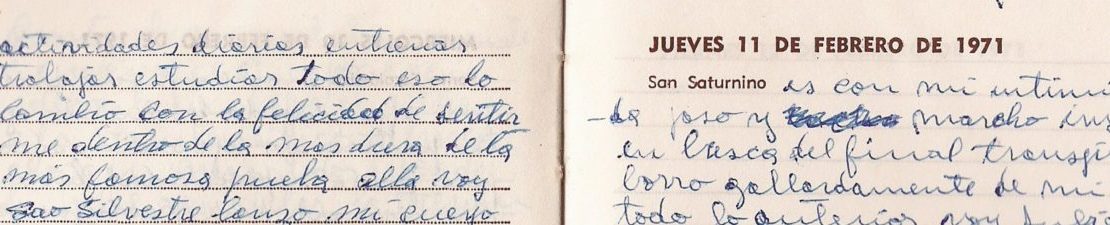 actividades diarias entrenar
trabajar estudiar todo eso lo
cambio con la felicidad de sentir
me dentro de la mas dura de la
más famosa prueba alla voy
Sao Silvestre lanzo mi cuerpo
JUEVES 11 DE FEBRERO DE 1971
San Saturnino es con mi
paso y marcho
en busca del final
borro gallardamente de mi
todo lo anterior voy